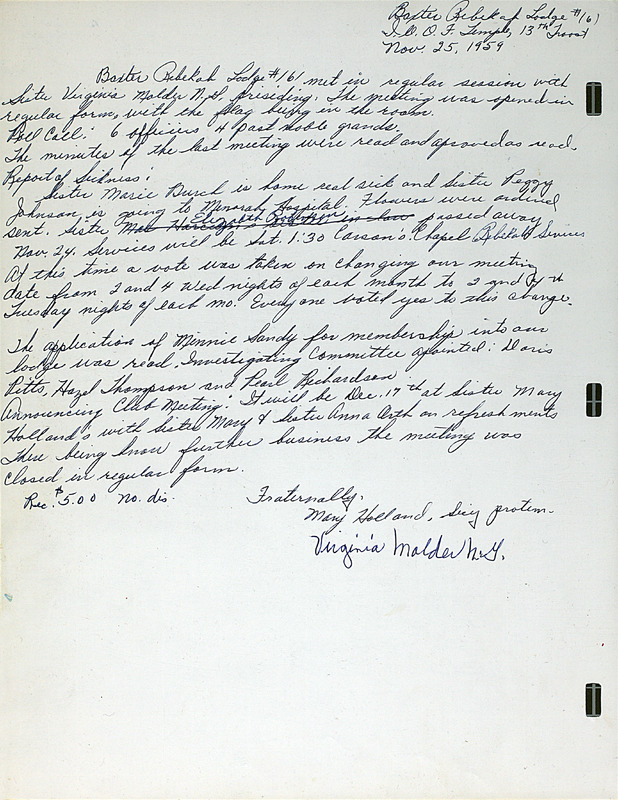 Baxter Rebekah Lodge #161
I.O.O.F. Temple, 13th Troost
Nov. 25, 1959
Baxter Rebekah Lodge #161 met in regular session with
Sister Virginia Molder N.G. presiding. The meeting was opened in
regular form, with the flag being in the room.
Roll Call: 6 officers 4 past noble grands.
The minutes of the last meeting were read and aproved as read.
Report of Sickness:
Sister Marie Burch is home real sick and Sister Peggy
Johnson is going to Menorah Hospital. Flowers were ordered
sent. Sister Elizabeth passed away
Nov. 24. Services will be Sat. 1:30 Carson's Chapel Rebekah Services
At this time a vote was taken on changing our meeting
date from 2 and 4 Wed nights of each month to 2 and 4th
Tuesday nights of each mo. Everyone voted yes to this change.
The application of Minnie Sandy for membership into our
lodge was read. Investigating Committee apointed: Doris
Pitts, Hazel Thompson and Pearl Richardson.
Announcing Club Meeting: It will be Dec. 17th at Sister Mary
Holland's with Sister Mary & Sister Anna Orth on refreshments
There being know further business the meeting was
closed in regular form.
Rec. $5.00 No. dis. Fraternally,
Mary Holland, Secy protem.
Virginia Molder N.G.